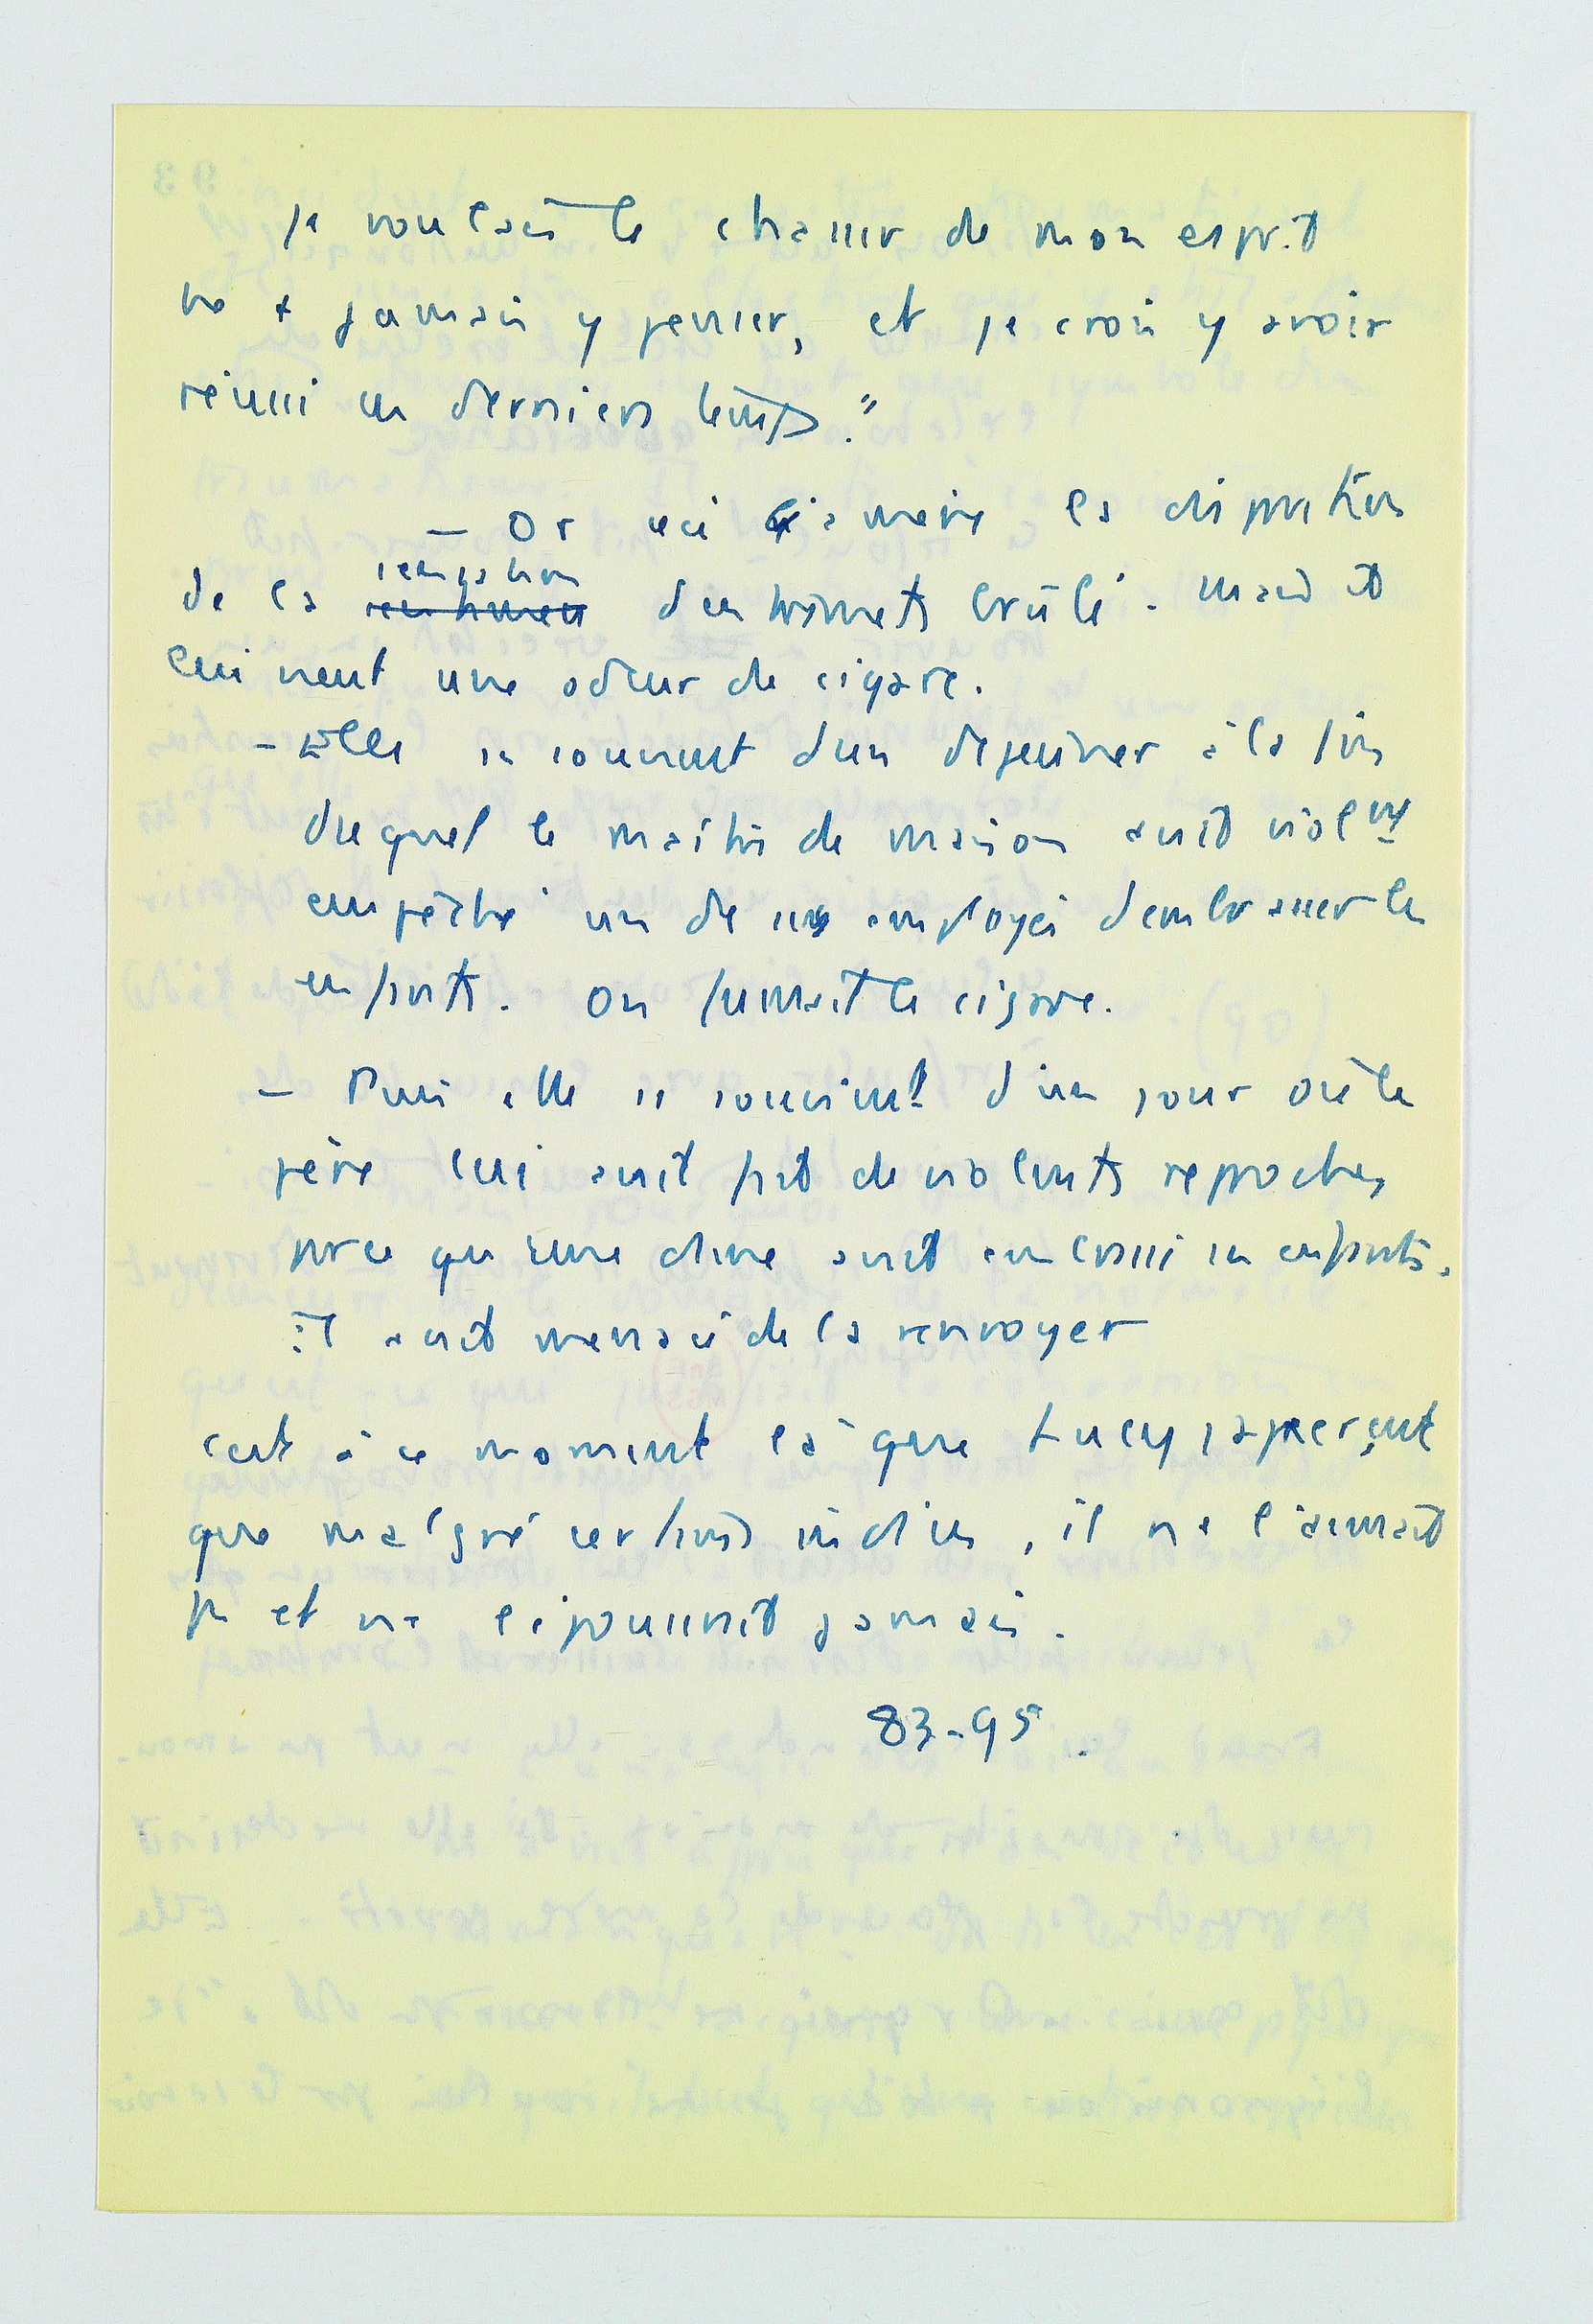 je voulais le chasser de mon esprit
ne + jamais y penser, et je crois y avoir
réussi ces derniers temps."
- Or ceci amène la disparition
de la sensation d'entremets brûlé. Mais il
lui vient une odeur de cigare.
- Elle se souvient d'un déjeuner à la fin
duquel le maître de maison avait violemt
empêché un de ses employés d'embrasser les
enfants. On fumait le cigare.
- Puis elle se souvient d'un jour où le
père lui avait fait de violents reproches
parce qu'une dame avait embrassé ses enfants.
il avait menacé de la renvoyer
c'est à ce moment là que Lucy s'aperçut
que malgré certains indices, il ne l'aimait
pas et ne l'épouserait jamais.
83-95.